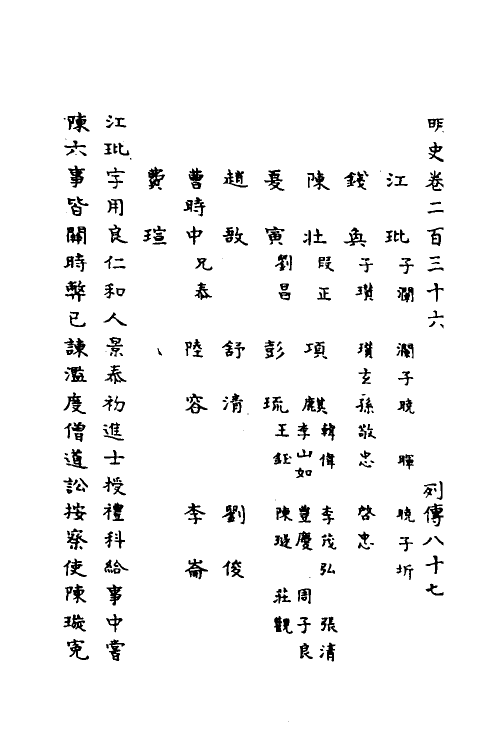 明史卷二百三十六 列傳八十七
江玭 子瀾 瀾子曉 暉 曉子圻
錢奐 子瓚 瓚玄孫敬忠 啓忠
陳壯 段正 項麒 韓偉 李山如 李茂弘 豐慶 張清 周子良
夏寅 劉昌 彭琉 王鈺 陳璇 莊觀
趙敔 舒清 劉俊
曹時中 兄泰 陸容 李崙
費瑄
江玭字用良仁和人景泰初進士授禮科給事中嘗
陳六事皆關時弊已諫濫度僧道訟按察使陳璇冤